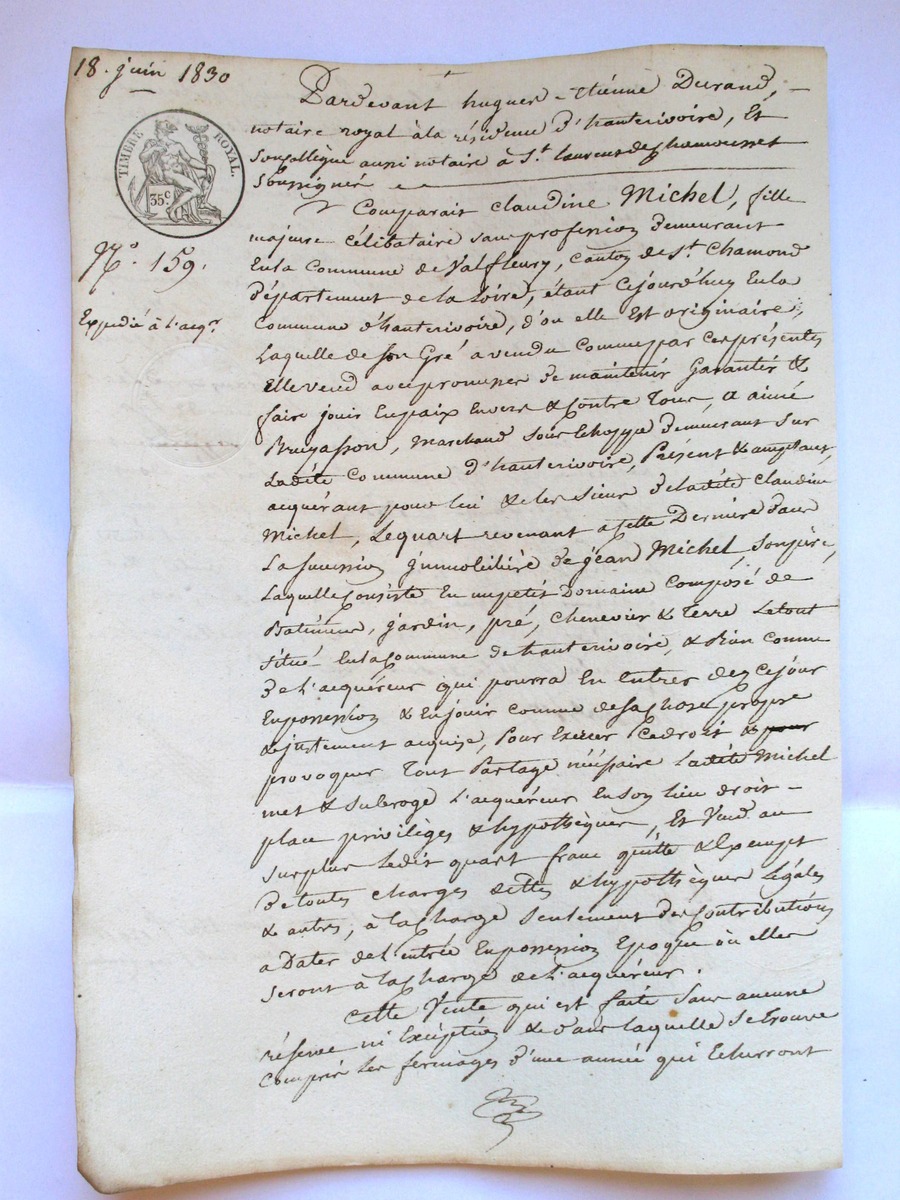 18. juin 1830
TIMBRE ROYAL.
35c
N.o 159.
Expédié à l'acqr.
Pardevant hugues-étienne Durand,
notaire royal à la résidence d'hauterivoire, Et
Son collègue aussi notaire à St. laurent de chamousset
Soussignés
Comparait claudine Michel, fille
majeure célibataire sans profession demeurant
En la Commune de Valfleury, canton de St. Chamond
département de la Loire, étant Cejourd'huy En la
Commune d'hauterivoire, d'ou elle Est originaire,
Laquelle de son Gré a vendu Comme par ces présentes
Elle vend avec promesses de maintenir Garantir &
faire jouir En paix Envers & Contre Tous, a aimé
Bruyasson, Marchand demeurant sur
Ladite Commune d'hauterivoire, Présent & acceptant,
acquérant pour lui & les siens de ladite Claudine
Michel, Le quart revenant a cette Dernière dans
La succession immobiliére de jean Michel, son père,
Laquelle Consiste En un petit Domaine Composé de
Batimens, jardin, pré, Chenevier & Terre Le tout
situé En la Commune de hauterivoire, & Bien connu
de L'acquéreur qui pourra En entrer dès ce jour
En possession & En jouir comme de sa chose propre
& justement acquise, Pour Exercer ce droit & pour
provoquer Tout Partage nécéssaire Ladite Michel
met & subroge L'acquéreur En son lieu droit
place privilèges & hypothèques, Et Vend au
surplus Ledit quart franc quitte & Exempt
de toutes charges dettes & hypothèques Légales
& autres, à la charge seulement des Contributions
a Dater de l'entrée En possession Epoque où elles
seront à la charge de L'acquéreur.
Cette Vente qui est faite sans aucune
réserve ni Exéption & dans laquelle se trouve
compris les fermages d'une année qui Echurront